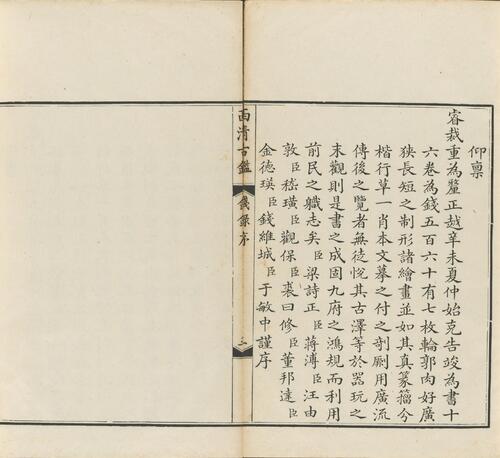 仰稟
睿裁重為釐正越辛未夏仲始克告竣為書十
六卷為錢五百六十有七枚輪郭肉好廣
狹長短之制形諸繪畫並如其真篆籀分
楷行草一肖本文摹之付之剞劂用廣流
傳後之覽者無徒悅其古澤等於器玩之
末觀則是書之成固九府之鴻規而利用
前民之軄志矣臣梁詩正臣蔣溥臣汪由
敦臣嵇璜臣觀保臣裘曰修臣董邦達臣
金德瑛臣錢維城臣于敏中謹序
西清古鑑
錢錄序
三